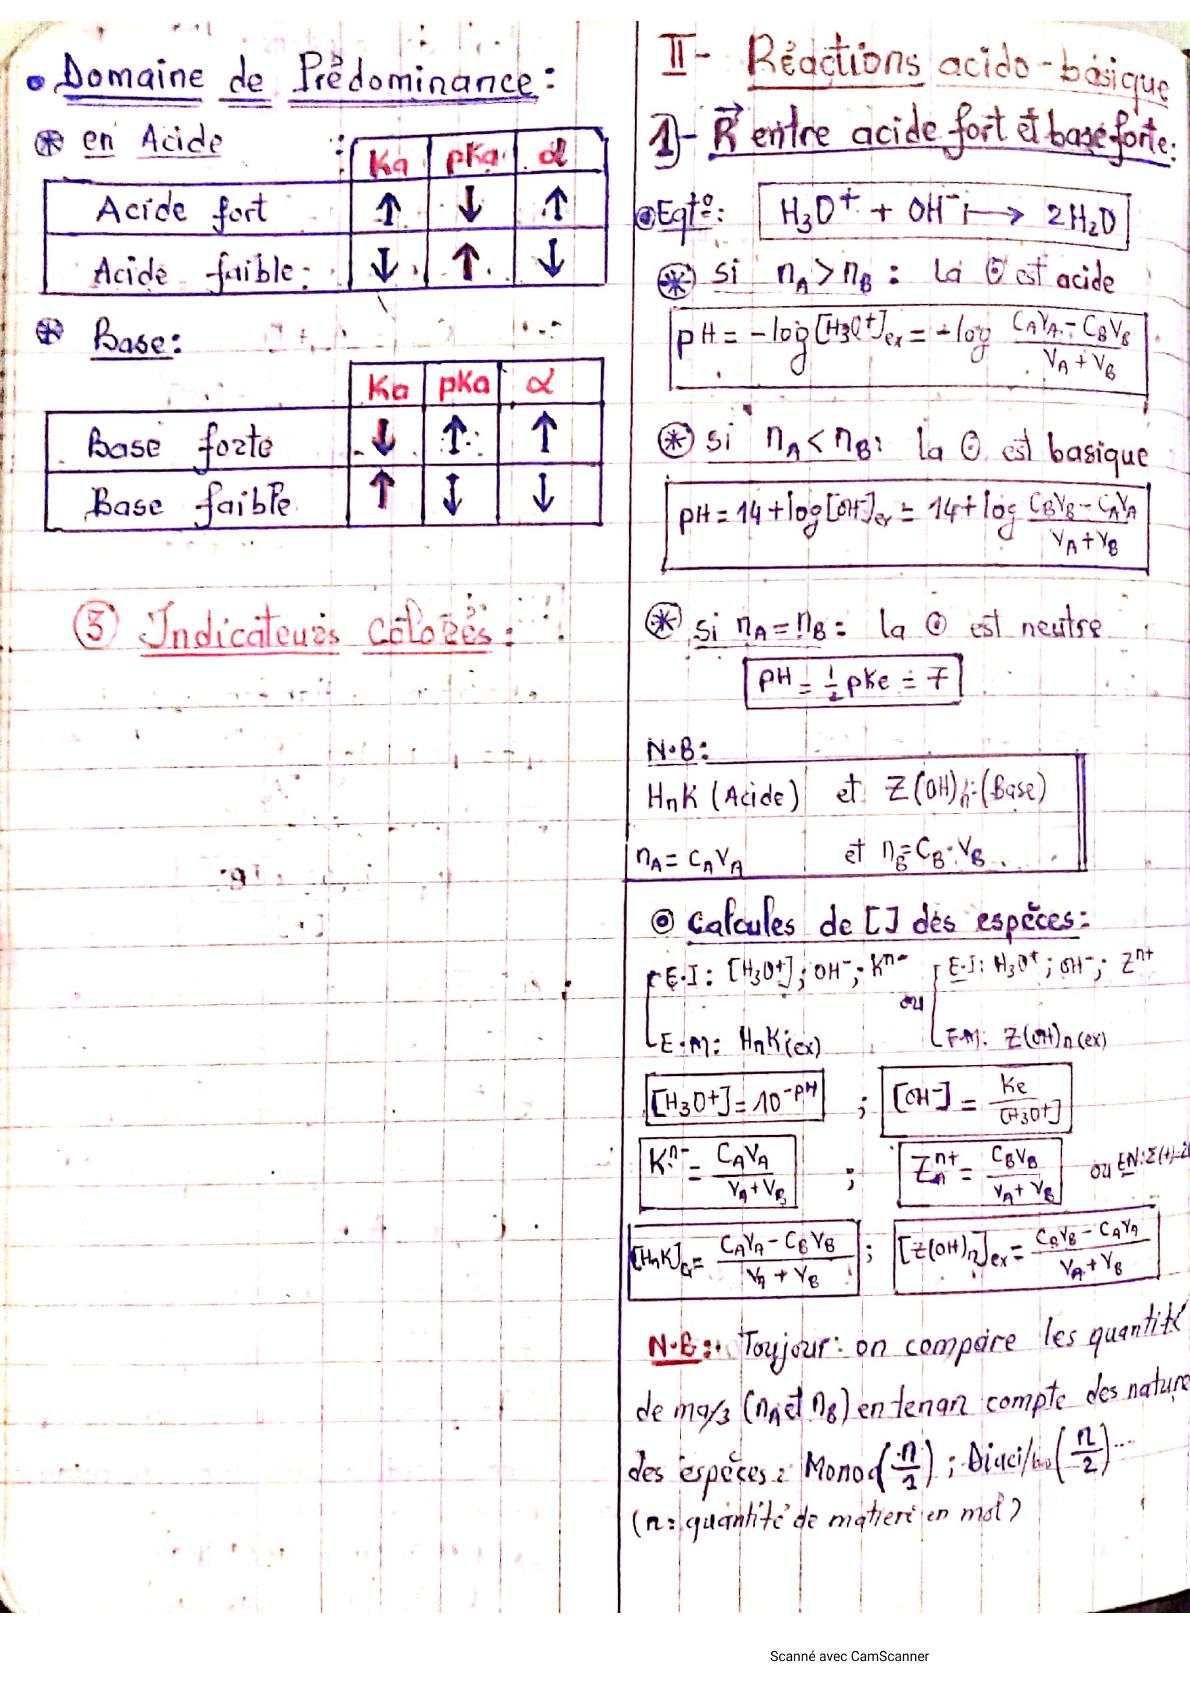 • Domaine de Prédominance :
* en Acide :
Ka pKa α
Acide fort ↑ ↓ ↑
Acide faible ↓ ↑ ↓
* Base :
Ka pKa α
Base forte ↓ ↑ ↑
Base faible ↑ ↓ ↓
③ Indicateurs colorés :
II - Réactions acido-basique
1)- R entre acide fort et base forte :
Eqtº : H₃O⁺ + OH⁻ → 2H₂O
* Si nA > nB : la Θ est acide
pH = -log[H₃O⁺]ex = -log (CAVA - CBVB)/(VA + VB)
* Si nA < nB : la Θ est basique
pH = 14 + log[OH⁻]ex = 14 + log (CBVB - CAVA)/(VA + VB)
* Si nA = nB : la Θ est neutre
pH = 1/2 pKe = 7
N.B :
HnK (Acide) et Z(OH)n (Base)
nA = CAVA et nB = CB.VB
Calcules de [] des espèces :
E.I : [H₃O⁺] ; OH⁻ ; Kⁿ⁻ ou E.I : H₃O⁺ ; OH⁻ ; Zⁿ⁺
E.M : HnK(ex) E.M : Z(OH)n(ex)
[H₃O⁺] = 10^-pH ; [OH⁻] = Ke/[H₃O⁺]
Kⁿ⁻ = CAVA/(VA + VB) ; Zⁿ⁺ = CBVB/(VA + VB) ou EN : Σ(+)
[HnK]ex = (CAVA - CBVB)/(VA + VB) ; [Z(OH)n]ex = (CBVB - CAVA)/(VA + VB)
N.B : Toujour : on compare les quantité
de ma/3 (nA et nB) en tenan compte des nature
des espèces : Mono (n/1) ; Diaci/ (n/2) ...
(n : quantité de matiere en mol)
Scanné avec CamScanner